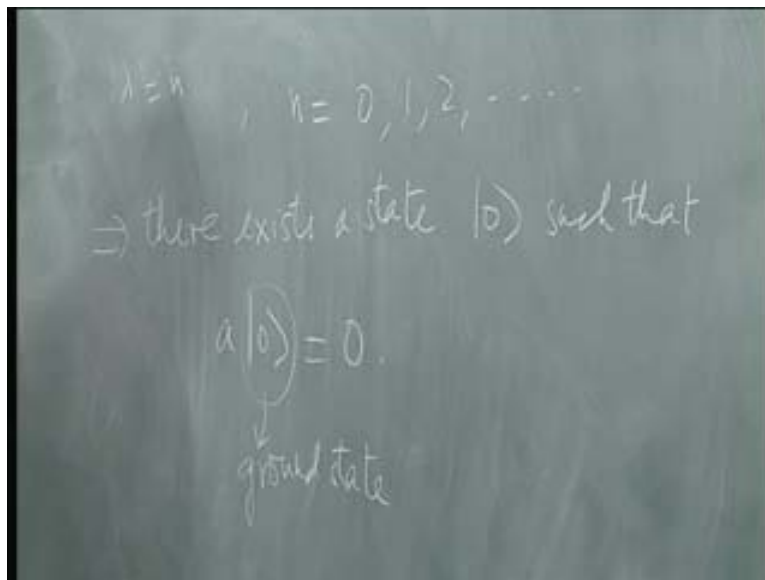 λ = n , n = 0, 1, 2, .....
⇒ there exists a state |0⟩ such that
a|0⟩ = 0.
↓
ground state